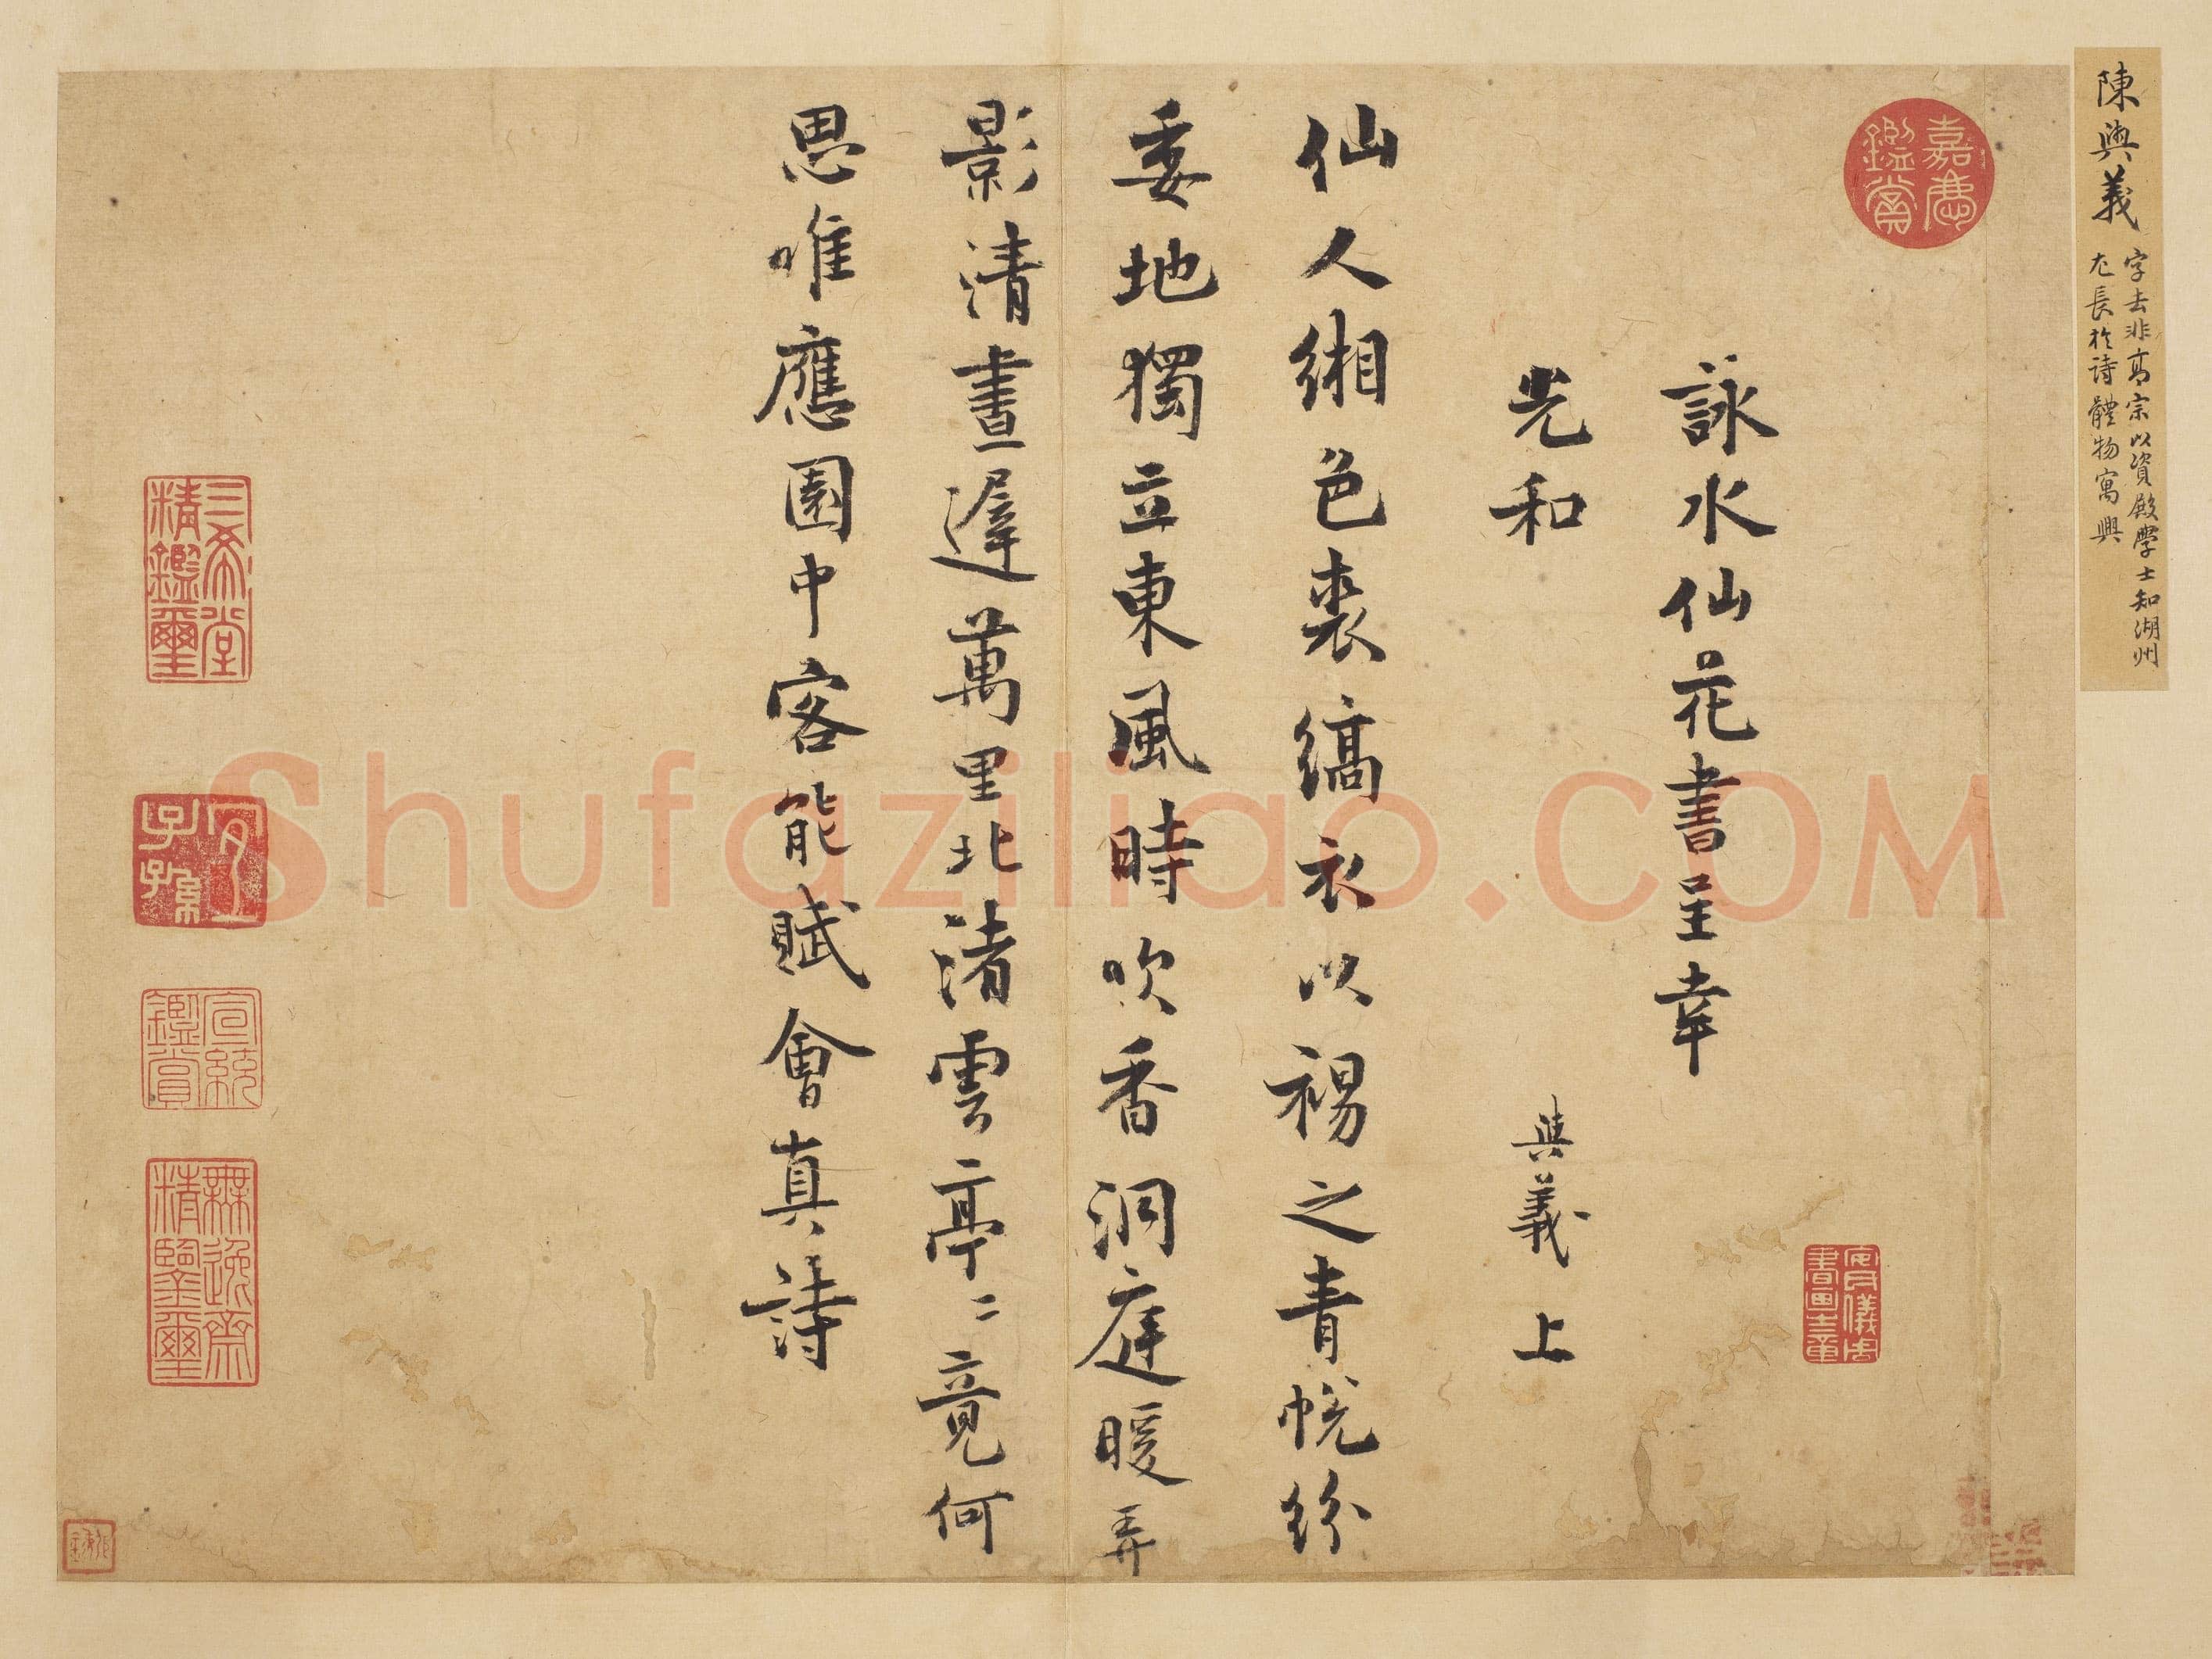 陳與義
字去非高宗以資殿學士知湖州
尤長於詩體物寓興
嘉慶
鑑賞
詠水仙花書呈幸
先和
與義上
仙人緗色裘縞衣以裼之青帨紛
委地獨立東風時吹香洞庭暖弄
影清晝遲萬里北渚雲亭〻竟何
思唯應園中客能賦會真詩
安儀周
書畫之章
三希堂
精鑑璽
宜
子孫
宣統
鑑賞
無逸齋
精鑒璽
Shufaziliao.COM